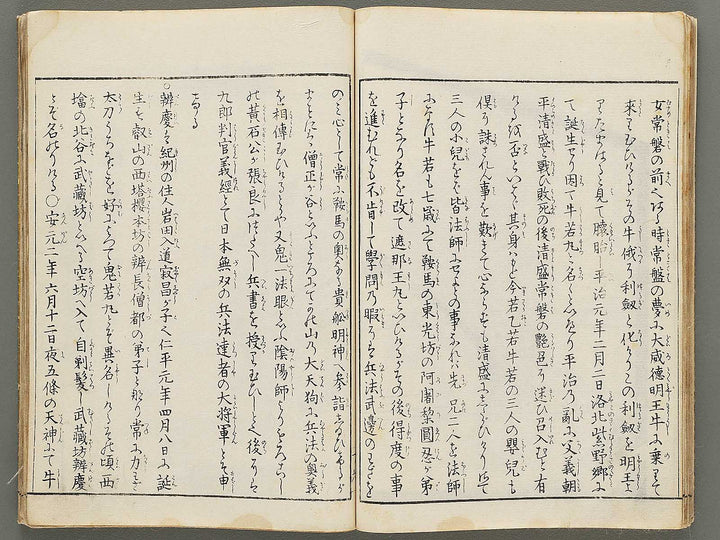 女常盤の前へ有る時常盤の夢に大威徳明王牛に乗りて
来りたまひけるがその牛俄に利劔と化しこの利劔を明王より
たまはると見て懐胎し平治元年二月二日洛北紫野郷に
て誕生せり因て牛若丸と名くとなり平治の乱に父義朝
平清盛と戦ひ敗死の後清盛常盤の艶色に迷ひ召入むと有
ける故否といへば其身はもとより今若乙若牛若の三人の嬰児も
倶に誅されん事を歎きて心ならずも清盛にしたがひけり
三人の小児をば皆法師にせよとの事なれば先兄二人を法師
になし牛若も七歳にて鞍馬の東光坊の阿闍梨圓忍が弟
子となり名を改て遮那王丸といひけるがその後得度の事
を進むれども不肯して学問の暇には兵法武邊のわざを
のみ心として常に鞍馬の奥なる貴舩明神へ参詣し
僧正が谷といふところにてかの山の大天狗に兵法の奥義
を相傳しけるとや又鬼一法眼といふ陰陽師よりもろこし
の黄石公が張良につたへし兵書を授りたまひしとぞ後には
九郎判官義経とて日本無双の兵法達者の大将軍とぞ申
ける
○辨慶は紀州の住人岩田入道寂昌が子にて仁平元年四月八日に誕
生し叡山の西塔櫻本坊の辨長僧都の弟子と那り常に力わざ
太刀うちなどを好によつて鬼若丸とぞ異名しけるその頃西
塔の北谷に武藏坊といへる空坊へ入て自剃髪し武藏坊辨慶
とぞ名のりける○安元二年六月十二日夜五條の天神にて牛